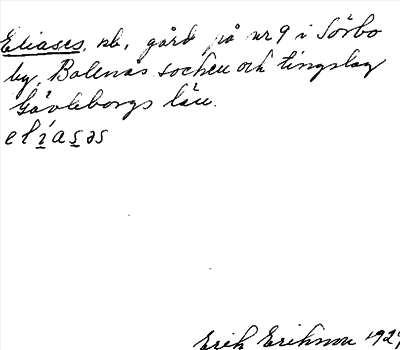 Eliases, nb, gård på nr 9 i Sörbo
by, Bollnäs socken och tingslag
Gävleborgs län.
elíasəs
Erik Eriksson 192